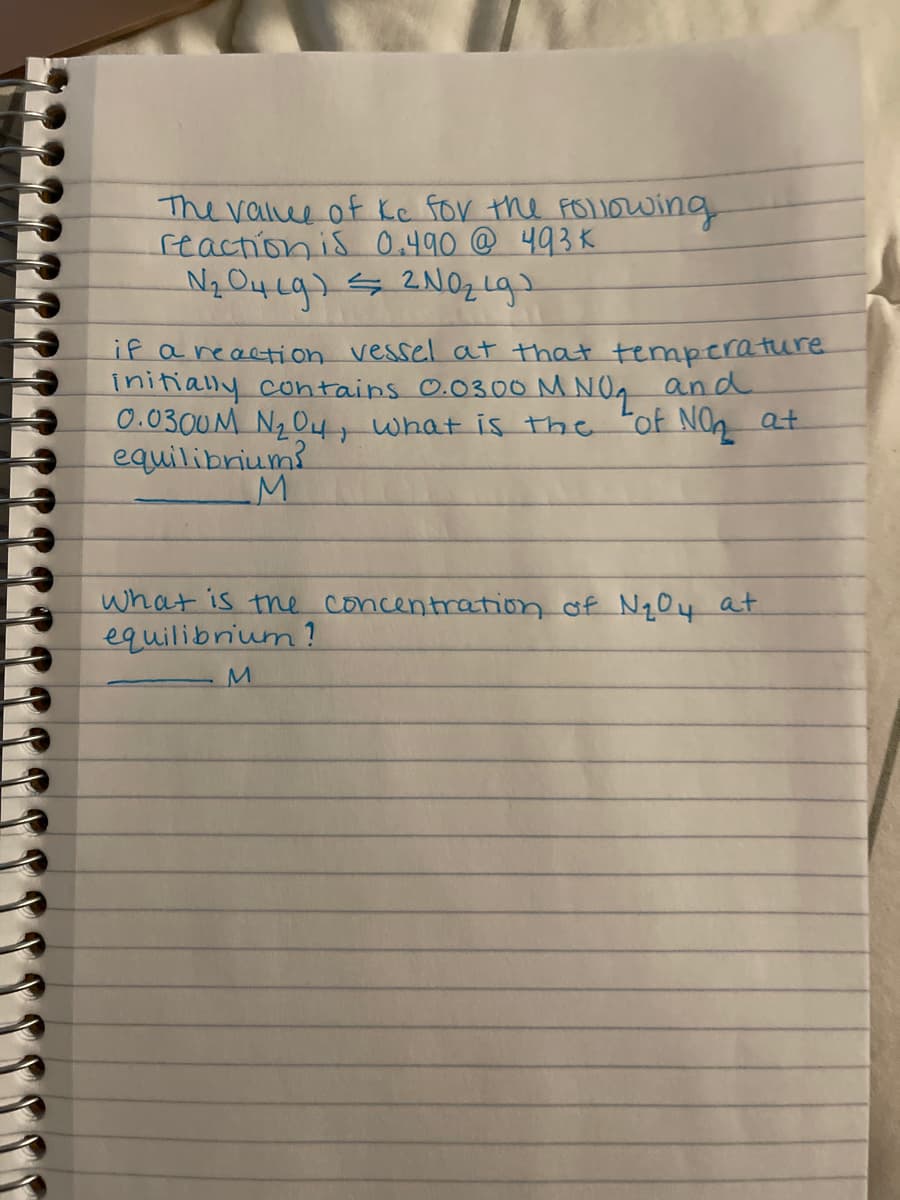 The value of Kc for the following
reaction is 0.490 @ 493K
N₂O₄(g) ⇋ 2NO₂(g)
if a reaction vessel at that temperature
initially contains 0.0300 M NO₂ and
0.0300M N₂O₄, what is the of NO₂ at
equilibrium?
____ M
what is the concentration of N₂O₄ at
equilibrium?
____ M